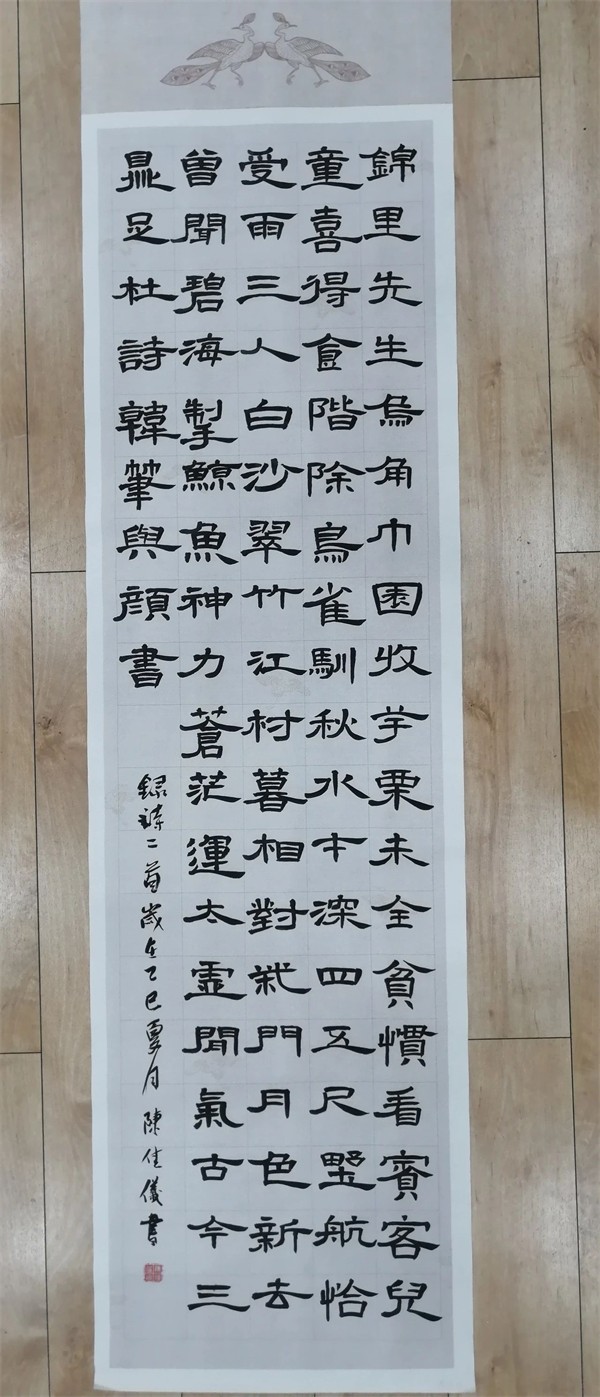 錦里先生烏角巾園收芋栗未全貧慣看賓客兒
童喜得食階除鳥雀馴秋水才深四五尺墅航恰
受兩三人白沙翠竹江村暮相對柴門月色新去
曾聞碧海掣鯨魚神力蒼茫運太虛間氣古今三
鼎足杜詩韓筆與顏書
錄詩二首歲在乙巳夏月陳佳儀書